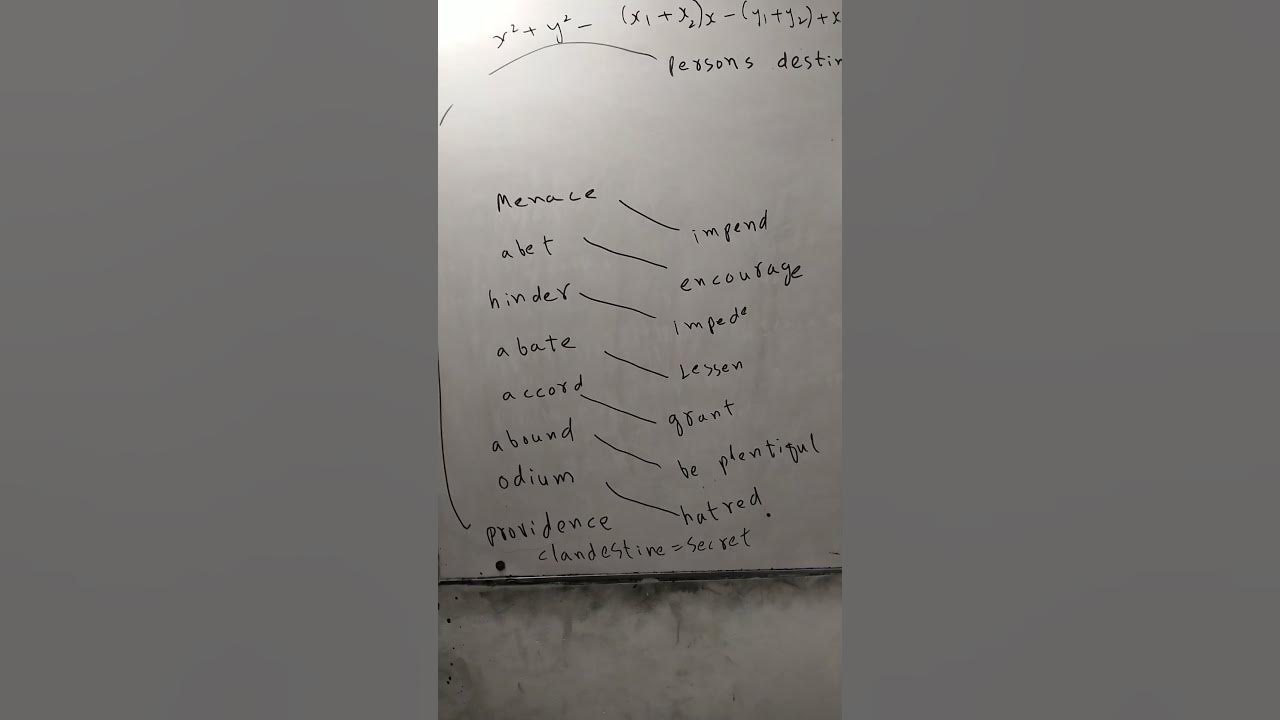 x² + y² - (x₁ + x₂)x - (y₁+y₂) + x
persons destin
Menace impend
abet encourage
hinder impede
abate Lessen
accord grant
abound be plentiful
odium hatred
providence
clandestine = secret